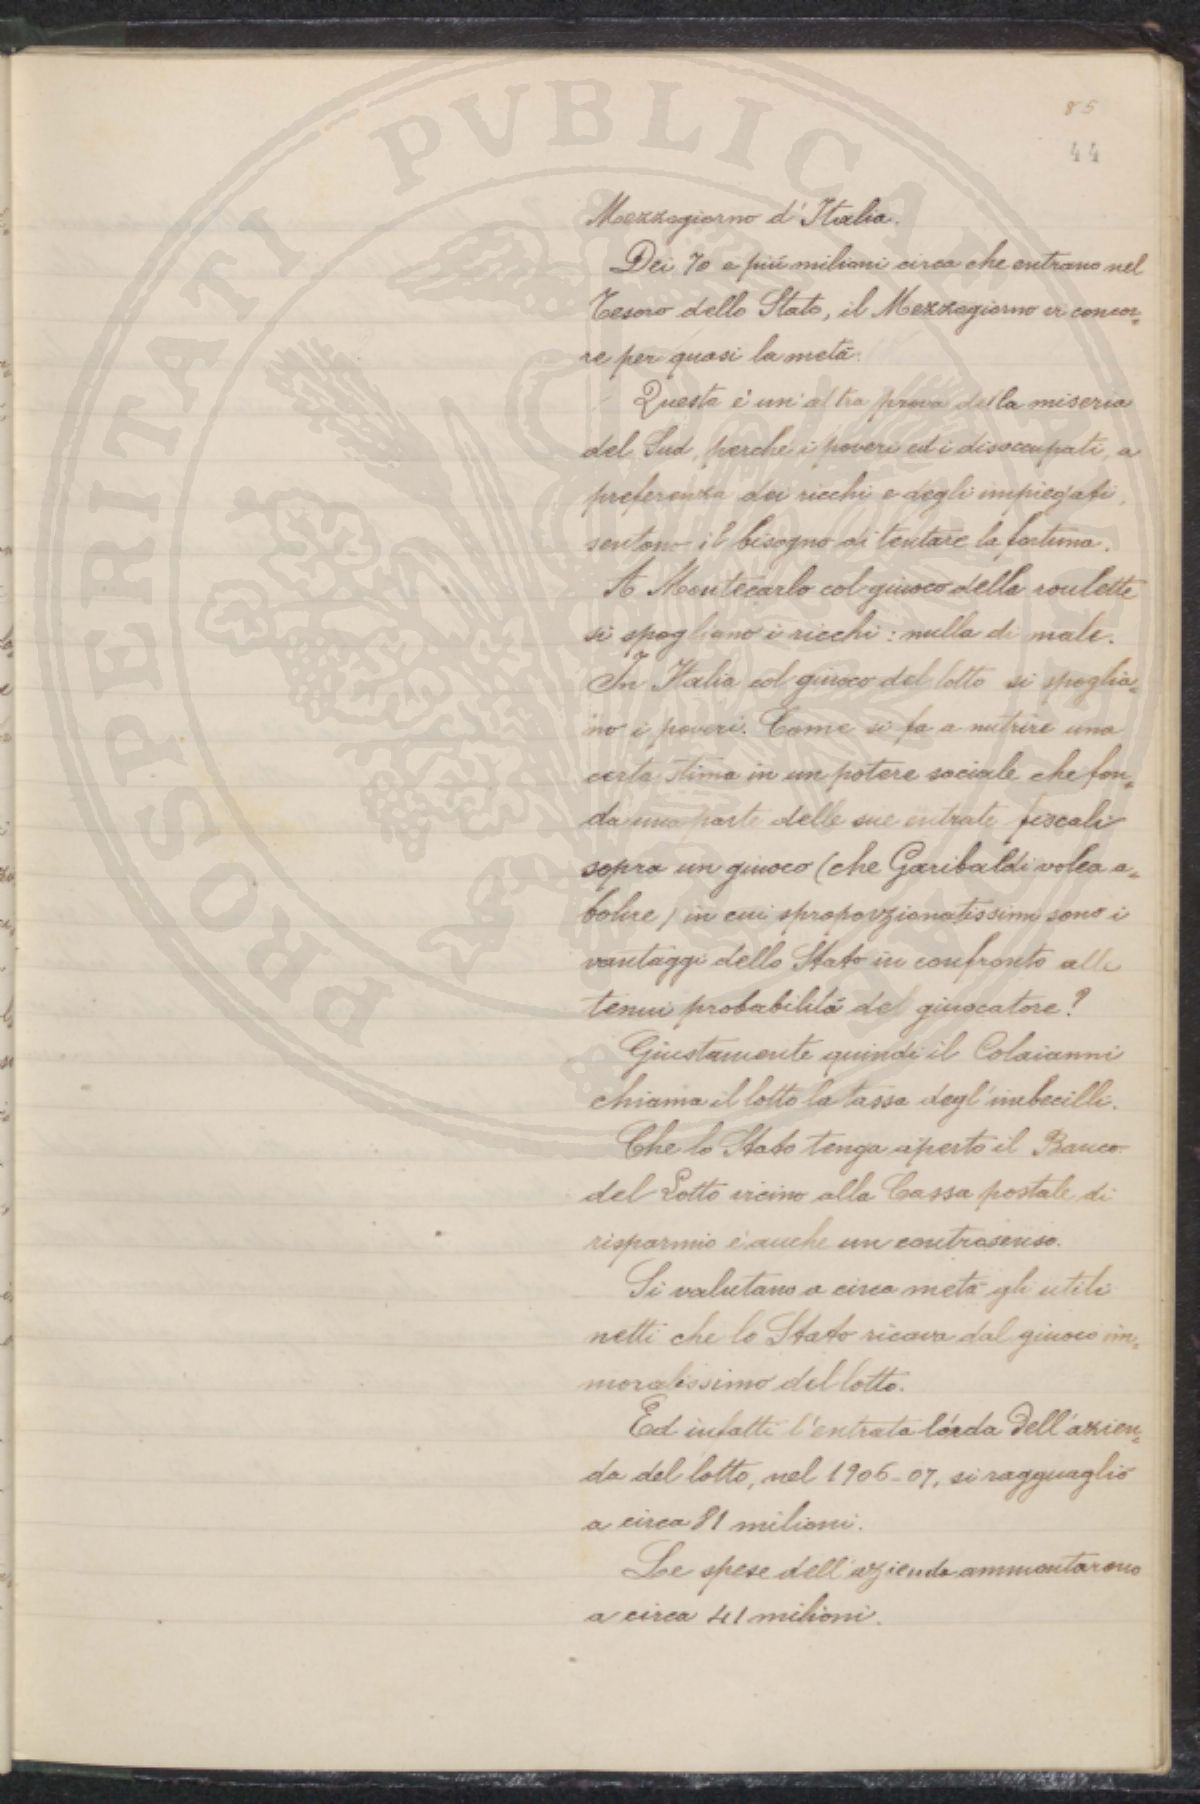 85
44
Mezzogiorno d'Italia.
Dei 70 e più milioni circa che entrano nel
Tesoro dello Stato, il Mezzogiorno vi concor=
re per quasi la metà.
Questa è un'altra prova della miseria
del Sud, perché i poveri ed i disoccupati, a
preferenza dei ricchi e degli impiegati,
sentono il bisogno di tentare la fortuna.
A Montecarlo col giuoco della roulette
si spogliano i ricchi: nulla di male.
In Italia col giuoco del lotto si spoglia=
no i poveri. Come si fa a nutrire una
certa stima in un potere sociale che fon=
da una parte delle sue entrate fiscali
sopra un giuoco (che Garibaldi volea a=
bolire) in cui sproporzionatissimi sono i
vantaggi dello Stato in confronto alle
tenui probabilità del giuocatore?
Giustamente quindi il Colaianni
chiama il lotto la tassa degl'imbecilli.
Che lo Stato tenga aperto il Banco
del Lotto vicino alla Cassa postale di
risparmio è anche un controsenso.
Si valutano a circa metà gli utili
netti che lo Stato ricava dal giuoco im=
moralissimo del lotto.
Ed infatti l'entrata lorda dell'azien=
da del lotto, nel 1906-07, si ragguagliò
a circa 81 milioni.
Le spese dell'azienda ammontarono
a circa 41 milioni.
PROSPERITATI PVBLICAE